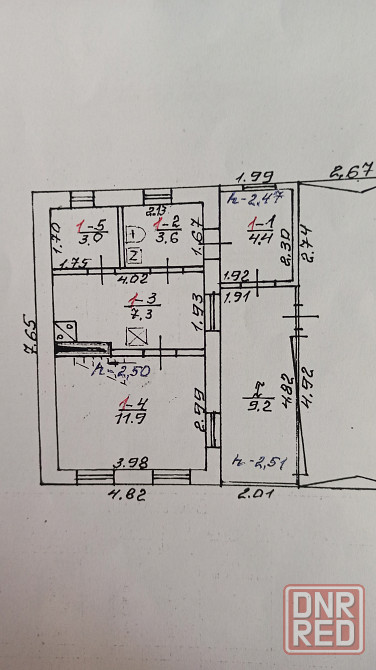 1.99
2.67
h-2.47
2.13
1-5
3.0
1-2
3.6
1-1
4.4
1.70
1.67
2.30
2.74
1.75
4.02
1.92
1.91
1-3
7.3
1.93
7.65
h-2.50
1-4
11.9
2.99
I
9.2
4.82
4.92
3.98
h-2,51
4.82
2.01
DNR
RED